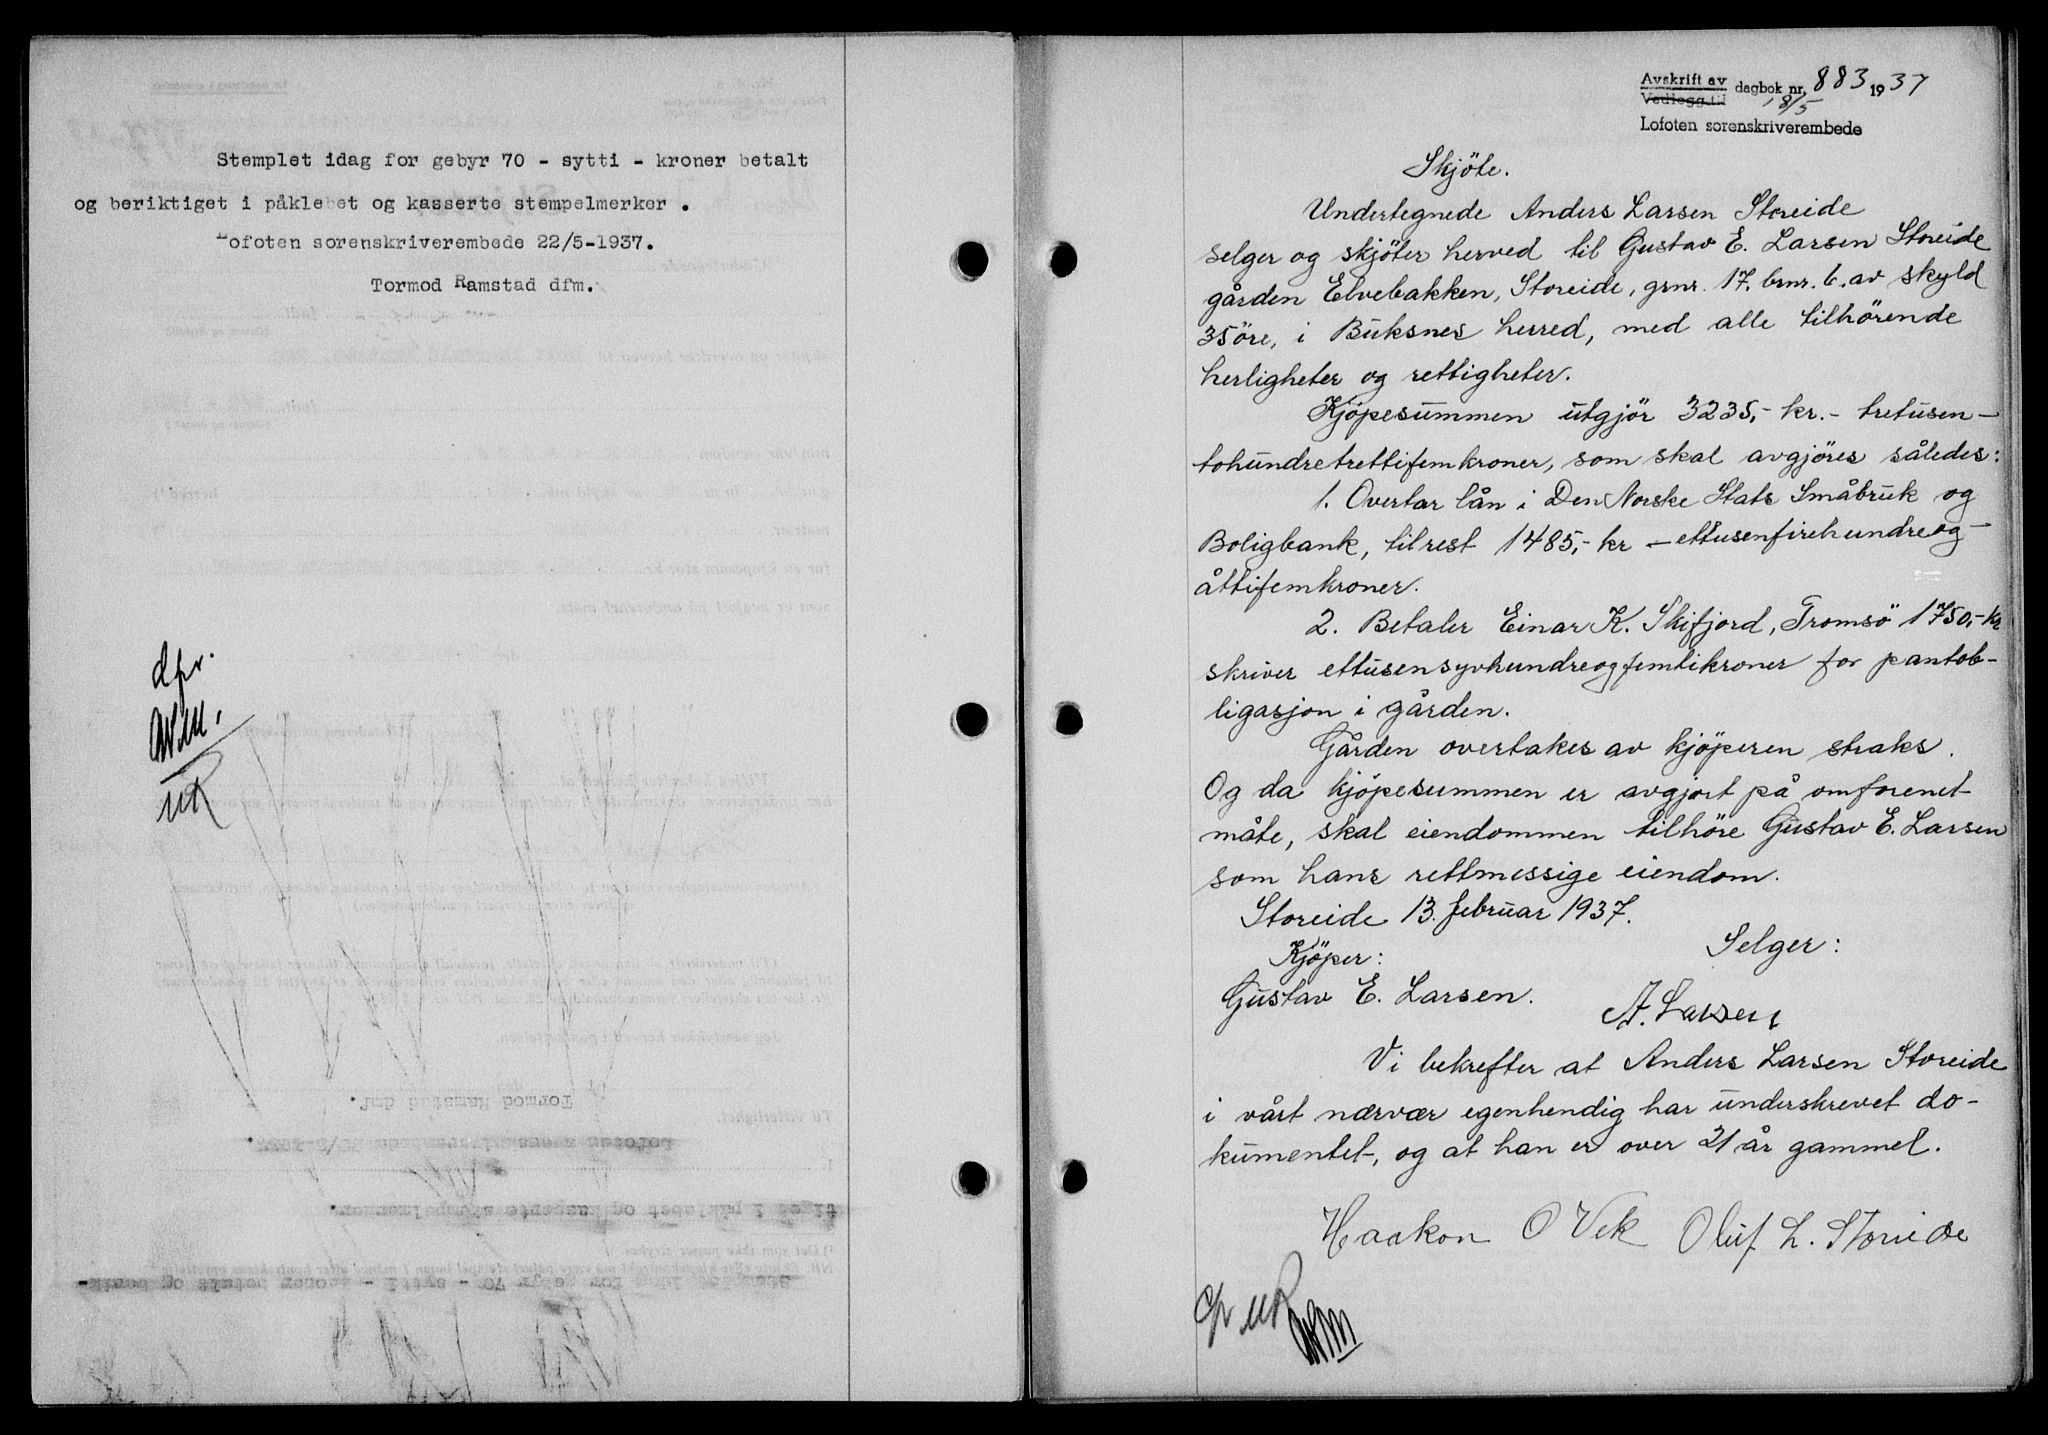 Stemplet idag for gebyr 70 - sytti - kroner betalt
og beriktiget i påklebet og kasserte stempelmerker .
Lofoten sorenskriverembede 22/5-1937.
Tormod Ramstad dfm.
Avskrift av
Vedlegg til
dagbok nr. 883 1937
18/5
Lofoten sorenskriverembede
Skjöte.
Undertegnede Anders Larsen Storeide
selger og skjöter herved til Gustav E. Larsen Storeide
gården Elvebakken, Storeide, grnr. 17, brnr. 6, av skyld
35 öre, i Buksnes herred, med alle tilhörende
herligheter og rettigheter.
Kjöpesummen utgjör 3235,- kr.- tretusen-
tohundretrettifemkroner, som skal avgjöres således:
1. Overtar lån i Den Norske Stats Småbruk og
Boligbank, tilrest 1485,- kr - ettusenfirehundreog-
åttifemkroner.
2. Betaler Einar K. Skifjord, Tromsö 1750,- kr
skriver ettusensyvhundreogfemtikroner for pantob-
ligasjon i gården.
Gården overtakes av kjöperen straks.
Og da kjöpesummen er avgjort på omforenet
måte, skal eiendommen tilhöre Gustav E. Larsen
som hans rettmessige eiendom.
Storeide 13. februar 1937.
Kjöper: Selger:
Gustav E. Larsen. A. Larsen
Vi bekrefter at Anders Larsen Storeide
i vårt nærvær egenhendig har underskrevet do-
kumentet, og at han er over 21 år gammel.
Haakon O Vik Oluf L. Storeide